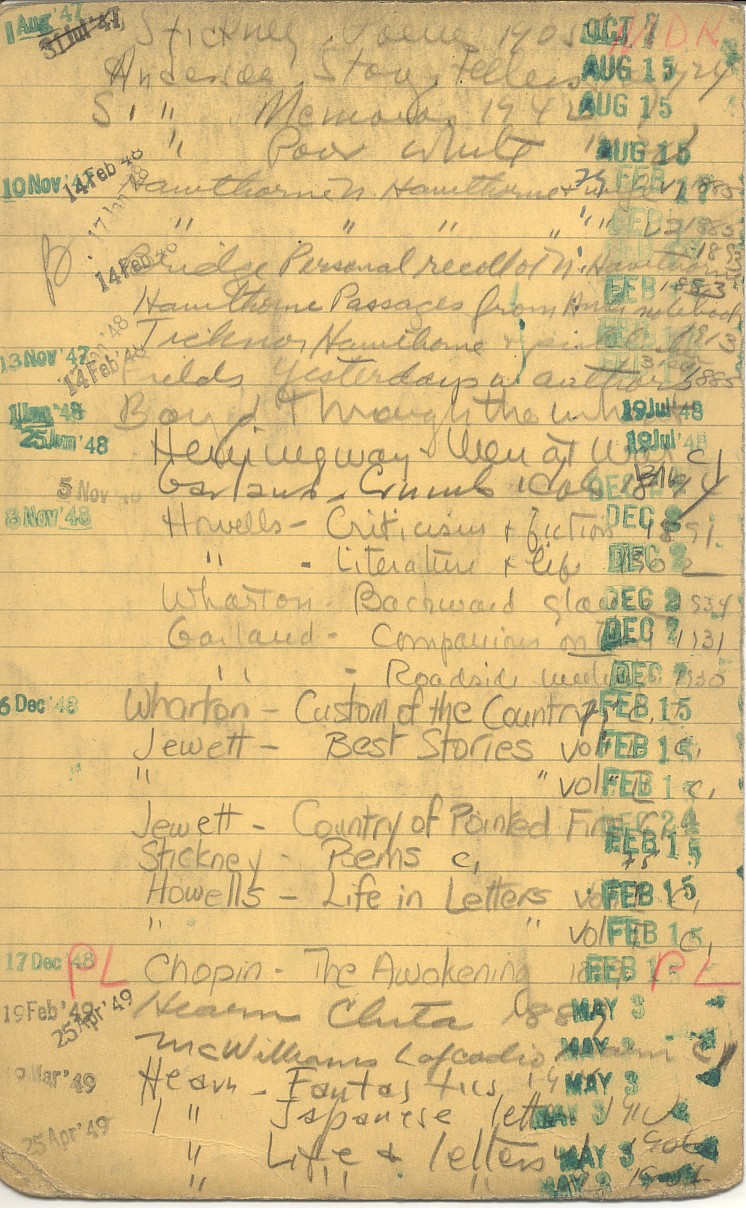 1 Aug '47 31 Jul '47 Stickney Poems 1905 OCT 7 MDR
Anderson Story Tellers 24 AUG 15
S. " Memoirs 1942 AUG 15
" Poor White " AUG 15
10 Nov '47 14 Feb '48 Hawthorne N. Hawthorne + wife v1 1885 FEB 17
17 Jan '48 " " " " v2 1885 FEB
14 Feb '48 Bridge Personal recoll of N. Hawthorne 1893
Hawthorne Passages from Amer notebook 1883 FEB
Ticknor Hawthorne + 1913
13 Nov '47 14 Feb '48 Fields Yesterdays w authors 1885
1 Jun '48 Boyd Through the wheat 19 Jul '48
25 Jun '48 Hemingway - Men at War c1 19 Jul '48
5 Nov Garland - Crumb. Idols 1894 DEC
8 Nov '48 Howells - Criticism + fiction 1891. DEC 2
" - Literature + life 1902 DEC 2
Wharton - Backward glance 1934 DEC 2
Garland - Companions on 1931 DEC 2
" - Roadside meetings 1930 DEC 2
6 Dec '48 Wharton - Custom of the Country, c. FEB 15
Jewett - Best Stories vol c, FEB 15
" " vol c, FEB 15
Jewett - Country of Pointed Firs c 24
Stickney - Poems c, FEB 15
Howells - Life in Letters vol c, FEB 15
" " vol c, FEB 15
17 Dec '48 PL Chopin - The Awakening FEB 1 PL
19 Feb '49 25 Apr '49 Hearn Chita 1889 MAY 3
McWilliams Lafcadio Hearn c1 MAY 3
Mar '49 Hearn - Fantastics 19 MAY 3
" Japanese letters 1910 MAY 3
25 Apr '49 " Life & letters 1906 MAY 3
" " " " MAY 3